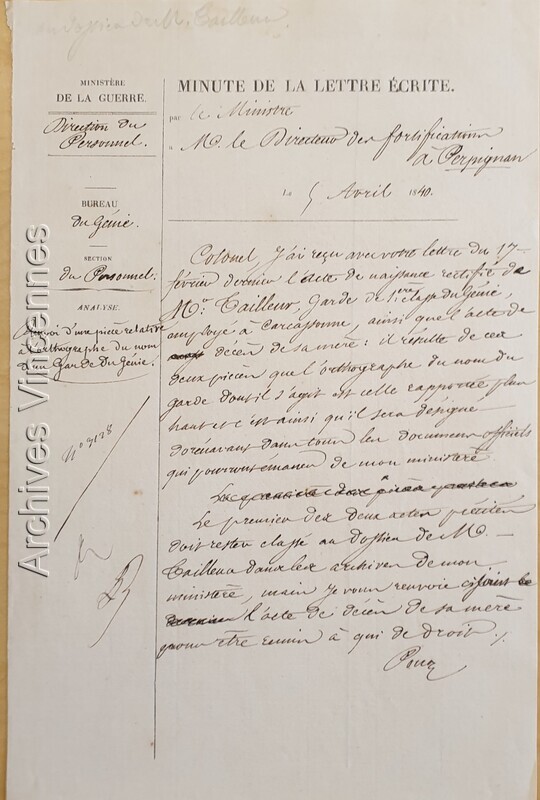 au Dossier de Mr. Tailleur
MINISTÈRE
DE LA GUERRE.
Direction du
Personnel.
BUREAU
du Génie.
SECTION
du Personnel.
ANALYSE.
Renvoi d'une pièce relative
à l'orthographe du nom
d'un Garde du Génie.
MINUTE DE LA LETTRE ÉCRITE.
par le Ministre
à M. le Directeur des fortifications
à Perpignan
Le 5 Avril 1840.
Colonel, J'ai reçu avec votre lettre du 17
février dernier l'acte de naissance rectifié de
Mr. Tailleur, Garde de 1re classe du Génie,
employé à Carcassonne, ainsi que l'acte de
décès de sa mère : il résulte de ces
deux pièces que l'orthographe du nom du
garde dont il s'agit est celle rapportée plus
haut et c'est ainsi qu'il sera désigné
dorénavant dans tous les documens officiels
qui pourront émaner de mon ministère
Le premier des deux actes précités
doit rester classé au dossier de M.
Tailleur dans les archives de mon
ministère, mais je vous renvoie ci-joint
l'acte de décès de sa mère
pour être remis à qui de droit ./.
Pour
Archives Vincennes